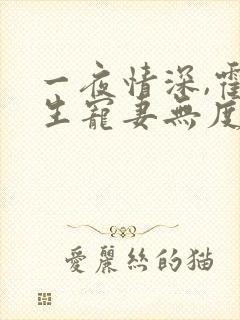 一夜情深,霍
生寵妻無度
愛麗絲的猫